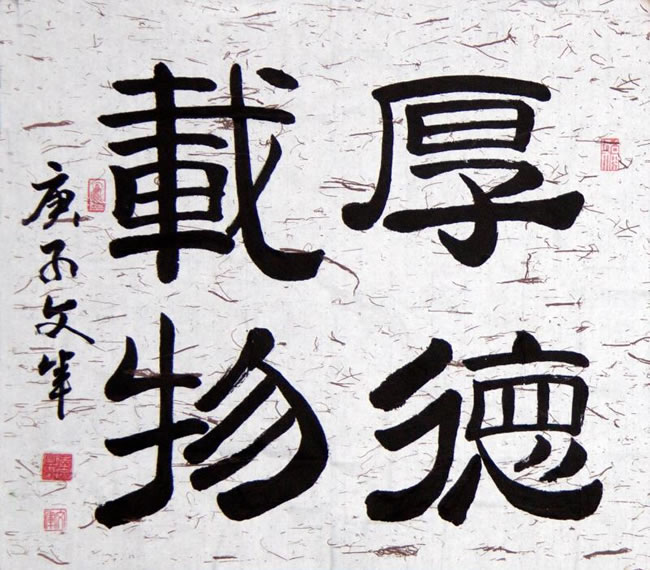 厚德
載物
庚子文军